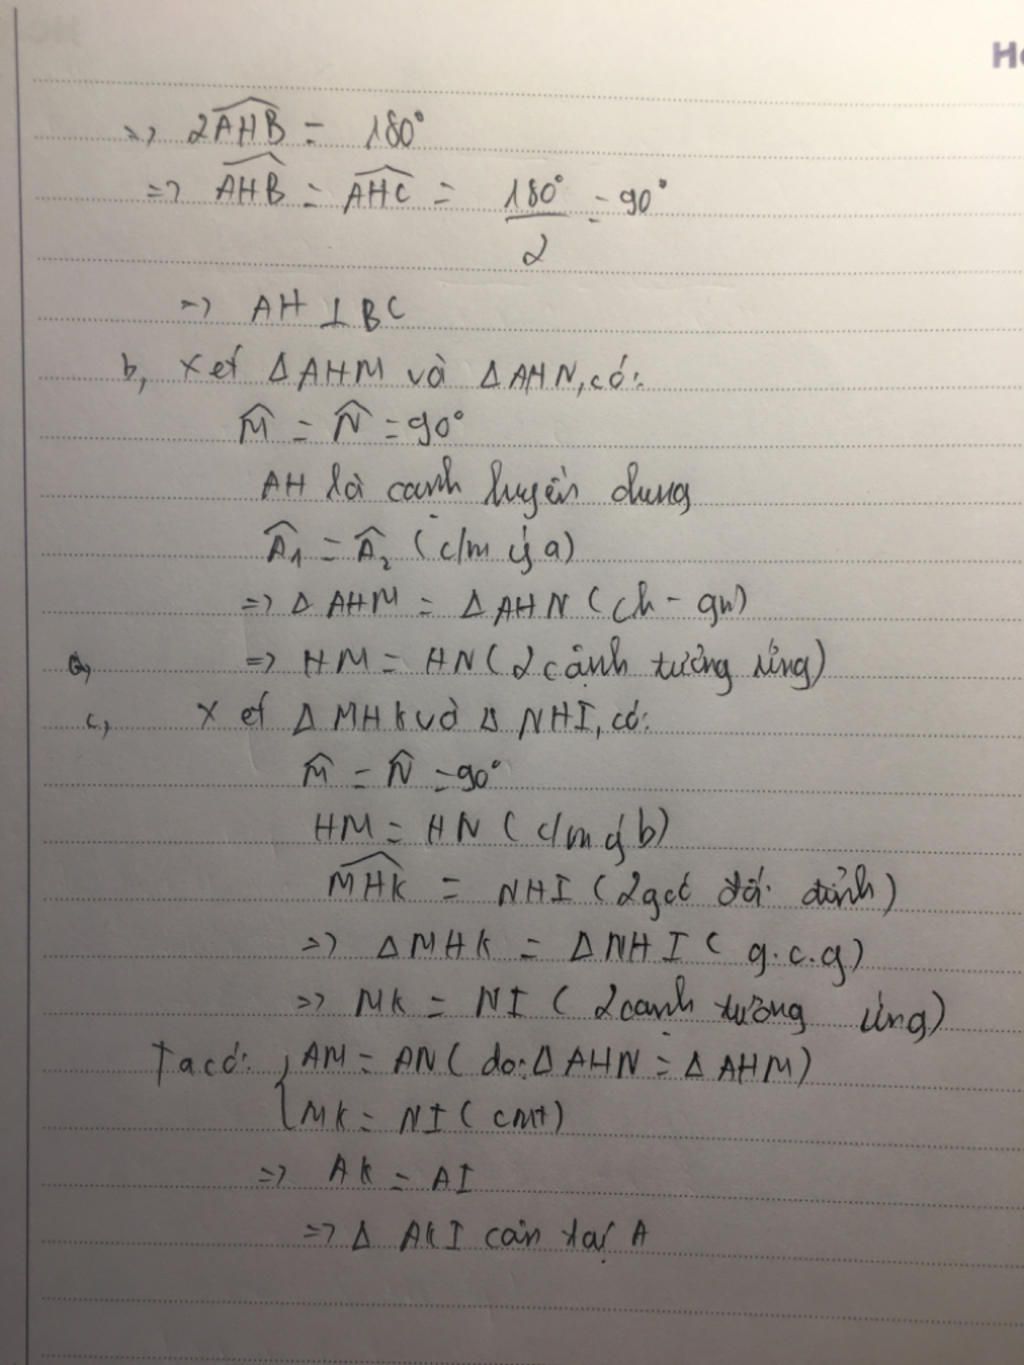 Ho
=> 2AHB = 180°
=> AHB = AHC = 180°/2 = 90°
=> AH ⊥ BC
b, Xét Δ AHM và Δ AHN, có:
M = N = 90°
AH là cạnh huyền chung
A1 = A2 (c/m ý a)
=> Δ AHM = Δ AHN (ch - gn)
=> HM = HN (2 cạnh tương ứng)
c, Xét Δ MHK và Δ NHI, có:
M = N = 90°
HM = HN (c/m ý b)
MHK = NHI (2 góc đối đỉnh)
=> Δ MHK = Δ NHI (g.c.g)
=> MK = NI (2 cạnh tương ứng)
Ta có: { AM = AN (do: Δ AHN = Δ AHM)
MK = NI (cmt)
=> AK = AI
=> Δ AKI cân tại A